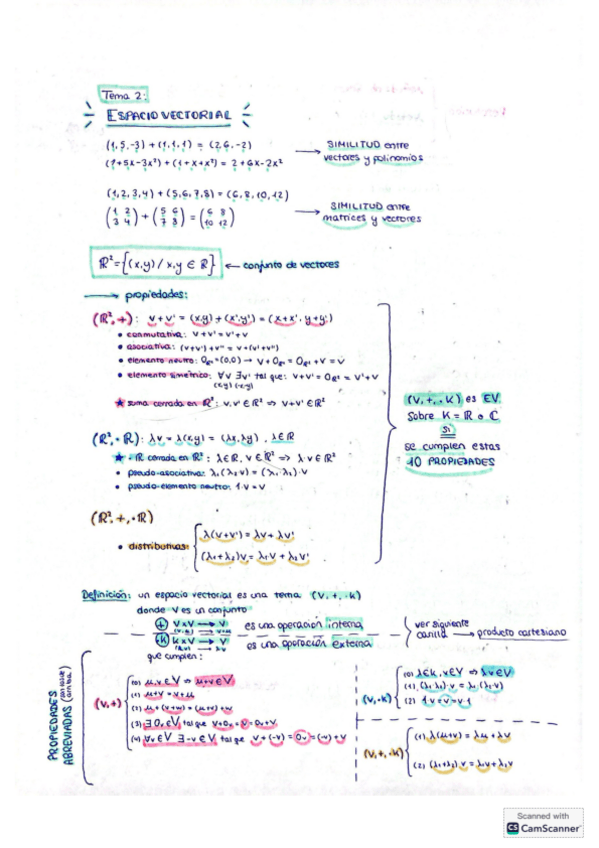 Tema 2:
ESPACIO VECTORIAL
(1,5,-3) + (1,1,1) = (2,6,-2)
(1+5x-3x²) + (1+x+x²) = 2+6x-2x²
SIMILITUD entre
vectores y polinomios
(1,2,3,4) + (5,6,7,8) = (6,8,10,12)
(1 2 / 3 4) + (5 6 / 7 8) = (6 8 / 10 12)
SIMILITUD entre
matrices y vectores
ℝ² = {(x,y) / x,y ∈ ℝ} ← conjunto de vectores
→ propiedades:
(ℝ², +): v+v' = (x,y) + (x',y') = (x+x', y+y')
• conmutativa: v+v' = v'+v
• asociativa: (v+v')+v'' = v+(v'+v'')
• elemento neutro: 0ℝ² = (0,0) → v+0ℝ² = 0ℝ²+v = v
• elemento simétrico: ∀v ∃v' tal que: v+v' = 0ℝ² = v'+v
★ suma cerrada en ℝ²: v,v' ∈ ℝ² ⇒ v+v' ∈ ℝ²
(ℝ², ·ℝ): λv = λ(x,y) = (λx, λy), λ∈ℝ
★ ·ℝ cerrada en ℝ²: λ∈ℝ, v∈ℝ² ⇒ λ·v∈ℝ²
• pseudo-asociativa: λ₁(λ₂v) = (λ₁λ₂)·v
• pseudo-elemento neutro: 1·v = v
(ℝ², +, ·ℝ)
• distributivas: λ(v+v') = λv + λv'
(λ₁+λ₂)v = λ₁v + λ₂v'
(V, +, ·K) es EV
sobre K = ℝ o ℂ
si
se cumplen estas
10 PROPIEDADES
Definición: un espacio vectorial es una terna (V, +, ·k)
donde V es un conjunto
+ V×V → V es una operación interna
·K K×V → V es una operación externa
ver siguiente
→ producto cartesiano
que cumplen:
PROPIEDADES
ABREVIADAS
(V,+)
(0) μ,v∈V ⇒ μ+v∈V
(1) μ+v = v+μ
(2) μ+(v+w) = (μ+v)+w
(3) ∃ 0ᵥ∈V tal que v+0ᵥ = v = 0ᵥ+v
(4) ∀v∈V ∃ -v∈V tal que v+(-v) = 0ᵥ = (-v)+v
(V,·K)
(0) λ∈K, v∈V ⇒ λv∈V
(1) (λ₁λ₂)v = λ₁(λ₂v)
(2) 1·v = v
(V,+,·K)
(1) λ(μ+v) = λμ + λv
(2) (λ₁+λ₂)v = λ₁v + λ₂v
Scanned with
CS CamScanner